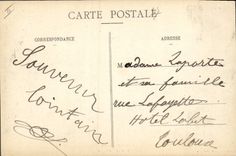 CARTE POSTALE
CORRESPONDANCE
ADRESSE
Souvenir
lointain
Madame Laporte
et sa famille
rue Lafayette
Hotel
Toulouse